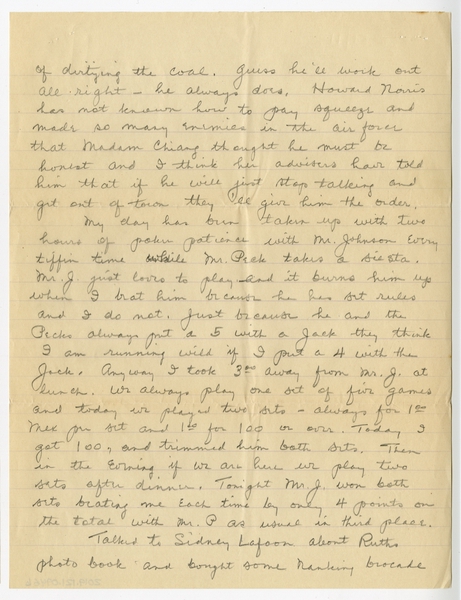 of dirtying the coal. Guess he'll work out
all right - he always does. Howard Norris
has not known how to pay squeeze and
made so many enemies in the air force
that Madam Chiang thought he must be
honest and I think her advisers have told
him that if he will just stop talking and
get out of town they'll give him the order.
My day has been taken up with two
hours of poker patience with Mr. Johnson every
tiffin time while Mr. Peck takes a siesta.
Mr. J. just loves to play and it burns him up
when I beat him because he has set rules
and I do not. Just because he and the
Pecks always put a 5 with a Jack they think
I am running wild if I put a 4 with the
Jack. Anyway I took 3.00 away from Mr. J. at
lunch. We always play one set of five games
and today we played two sets - always for 1.00
Mex per set and 1.00 for 100 or over. Today I
got 100, and trimmed him both sets. Then
in the Evening if we are here we play two
sets after dinner. Tonight Mr. J. won both
sets beating me each time by only 4 points on
the total with Mr. P as usual in third place.
Talked to Sidney Lafoon about Ruth's
photo book and bought some Nanking brocade